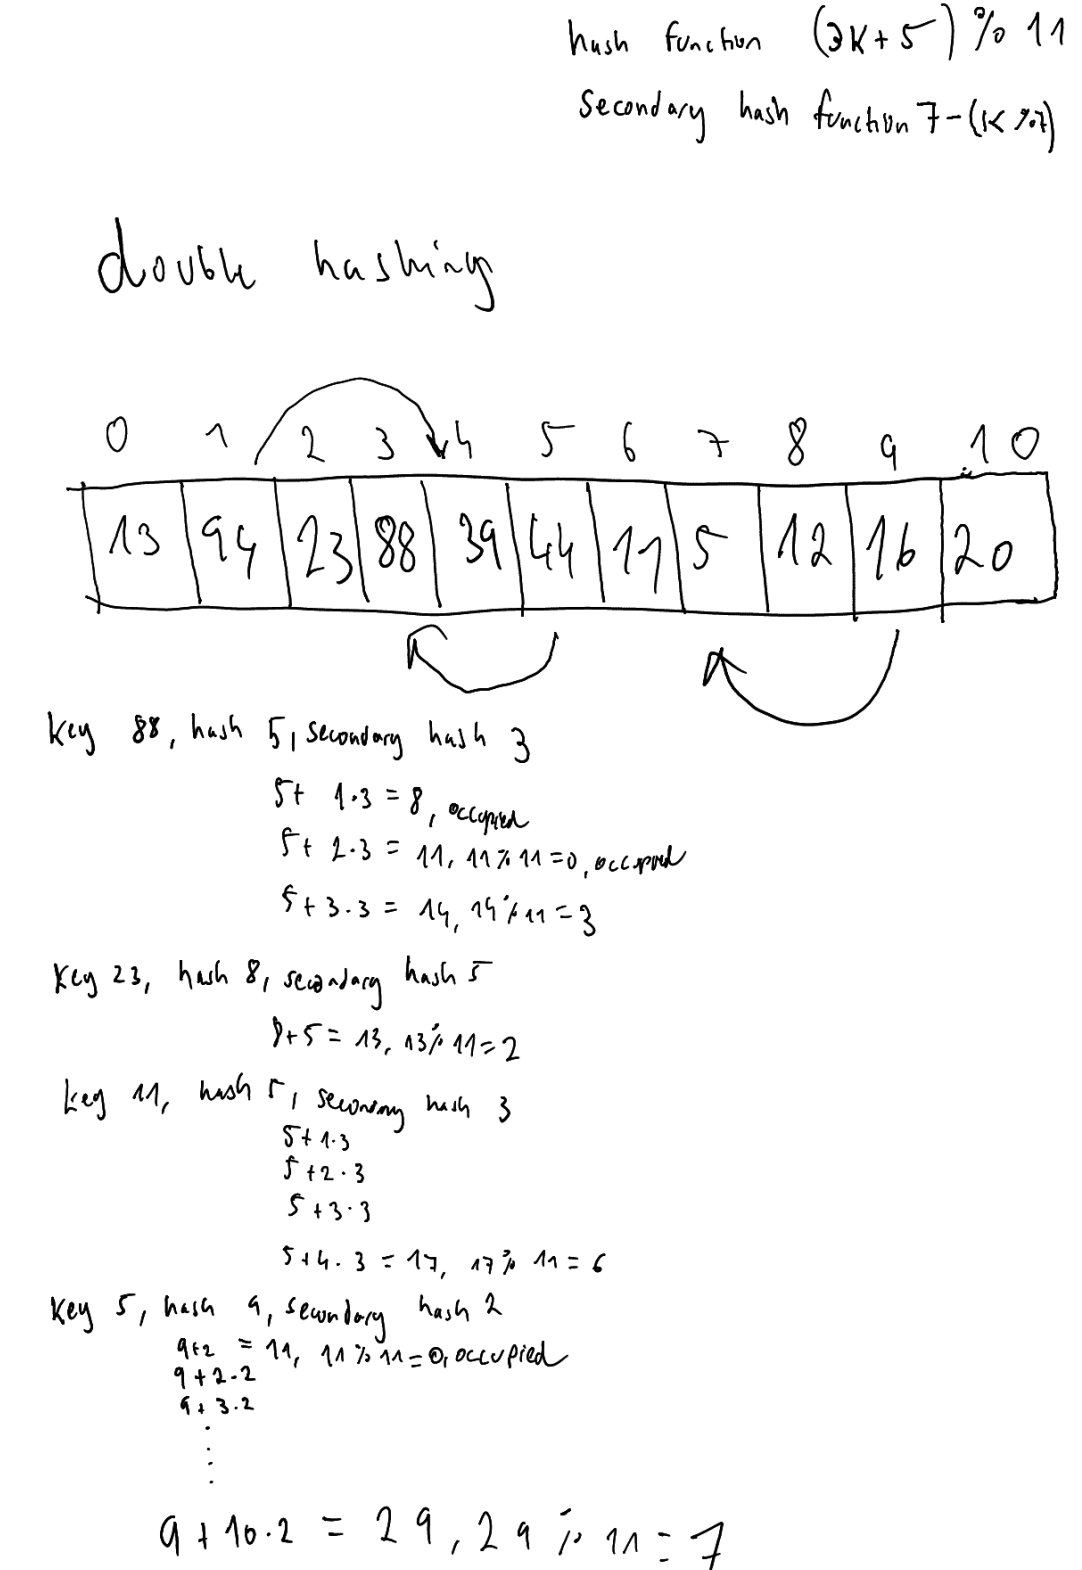 hash function (3K+5) % 11
Secondary hash function 7-(K%7)
double hashing
0 1 2 3 4 5 6 7 8 9 10
13 94 23 88 39 44 11 5 12 16 20
Key 88, hash 5, secondary hash 3
5+ 1·3 = 8, occupied
5+ 2·3 = 11, 11%11=0, occupied
5+3·3 = 14, 14%11=3
Key 23, hash 8, secondary hash 5
8+5 = 13, 13%11=2
key 11, hash 5, secondary hash 3
5+1·3
5+2·3
5+3·3
5+4·3 = 17, 17% 11=6
Key 5, hash 9, secondary hash 2
9+2 = 11, 11%11=0, occupied
9+2·2
9+3·2
.....
9+10·2 = 29, 29 % 11=7